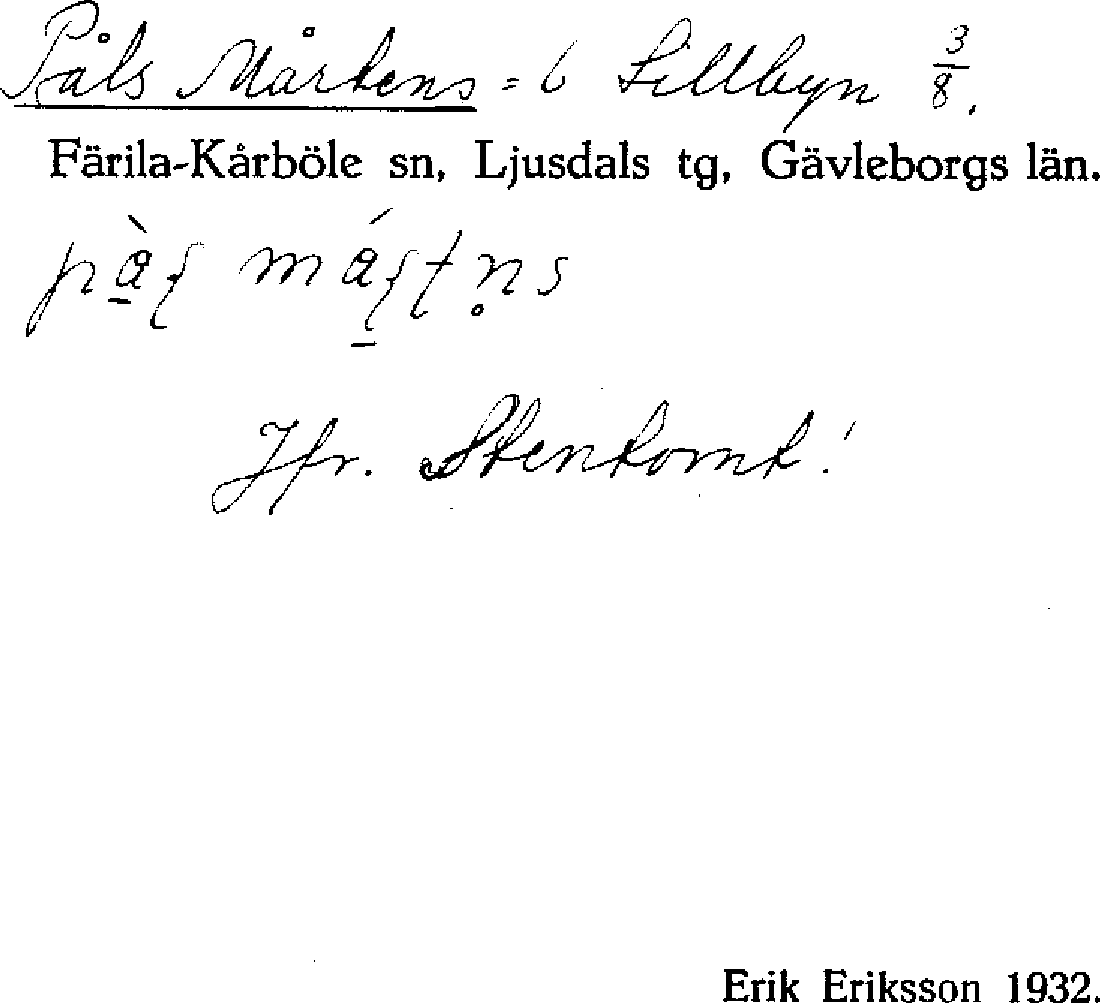 Påls Mårtens = 6 Lillbyn 3/8.
Färila-Kårböle sn, Ljusdals tg, Gävleborgs län.
Jfr. Stenkomt!
Erik Eriksson 1932.